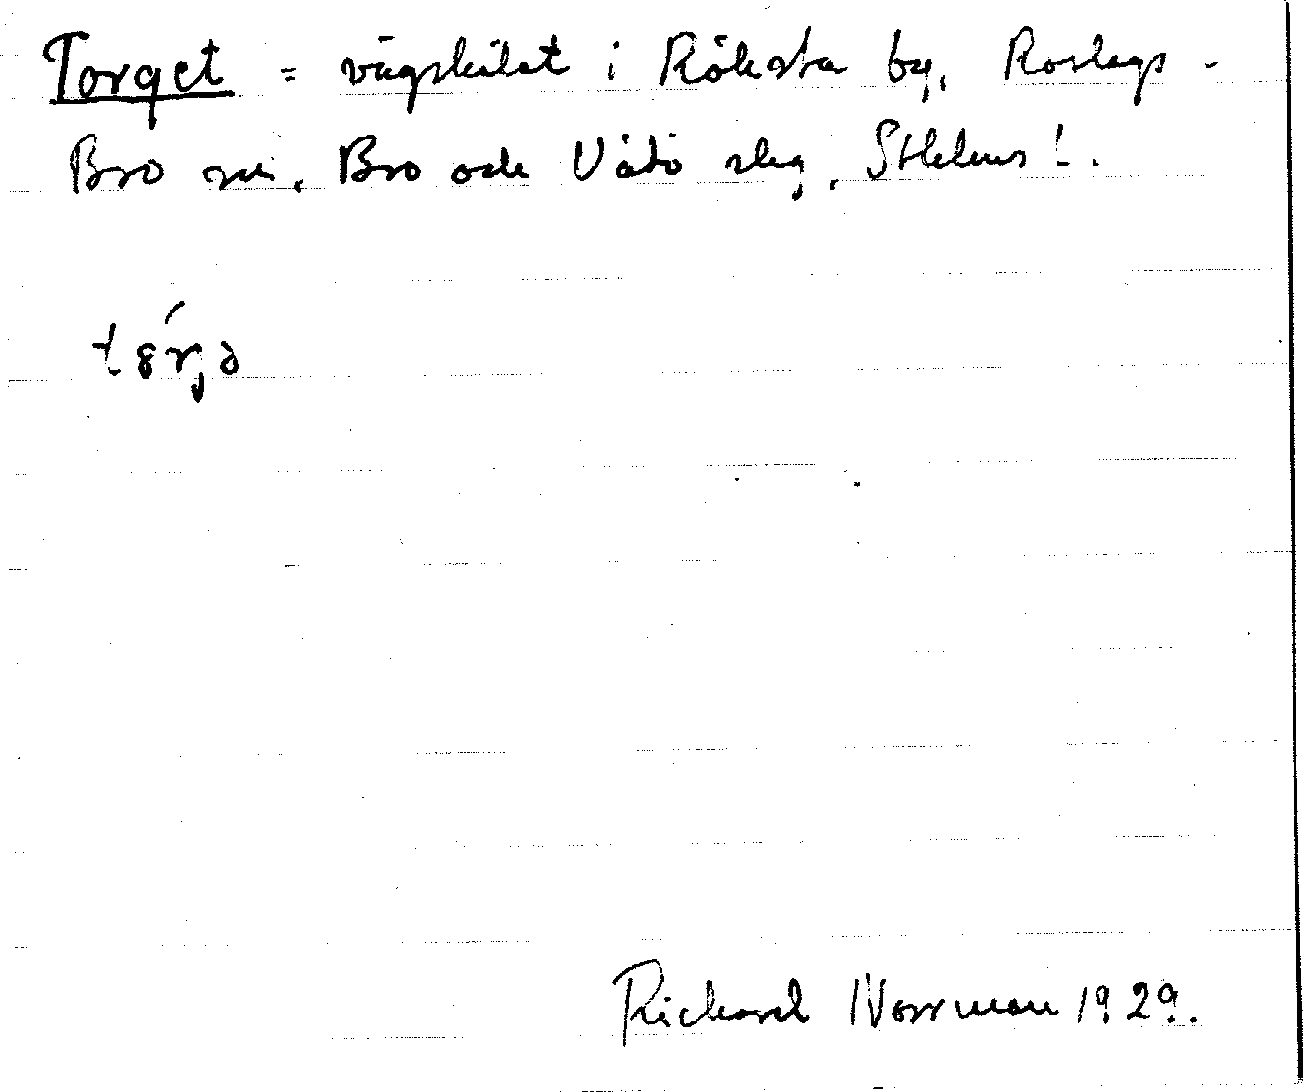 Torget = vägskälet i Röksta by, Roslags-
Bro sn, Bro och Vätö slg, Sthlms l.
Rickard Norrman 1929.